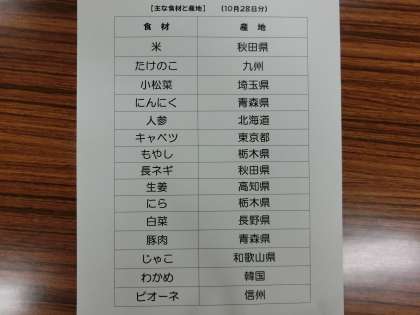 【主な食材と産地】 (10月28日分)
食 材 産 地
米 秋田県
たけのこ 九州
小松菜 埼玉県
にんにく 青森県
人参 北海道
キャベツ 東京都
もやし 栃木県
長ネギ 秋田県
生姜 高知県
にら 栃木県
白菜 長野県
豚肉 青森県
じゃこ 和歌山県
わかめ 韓国
ピオーネ 信州